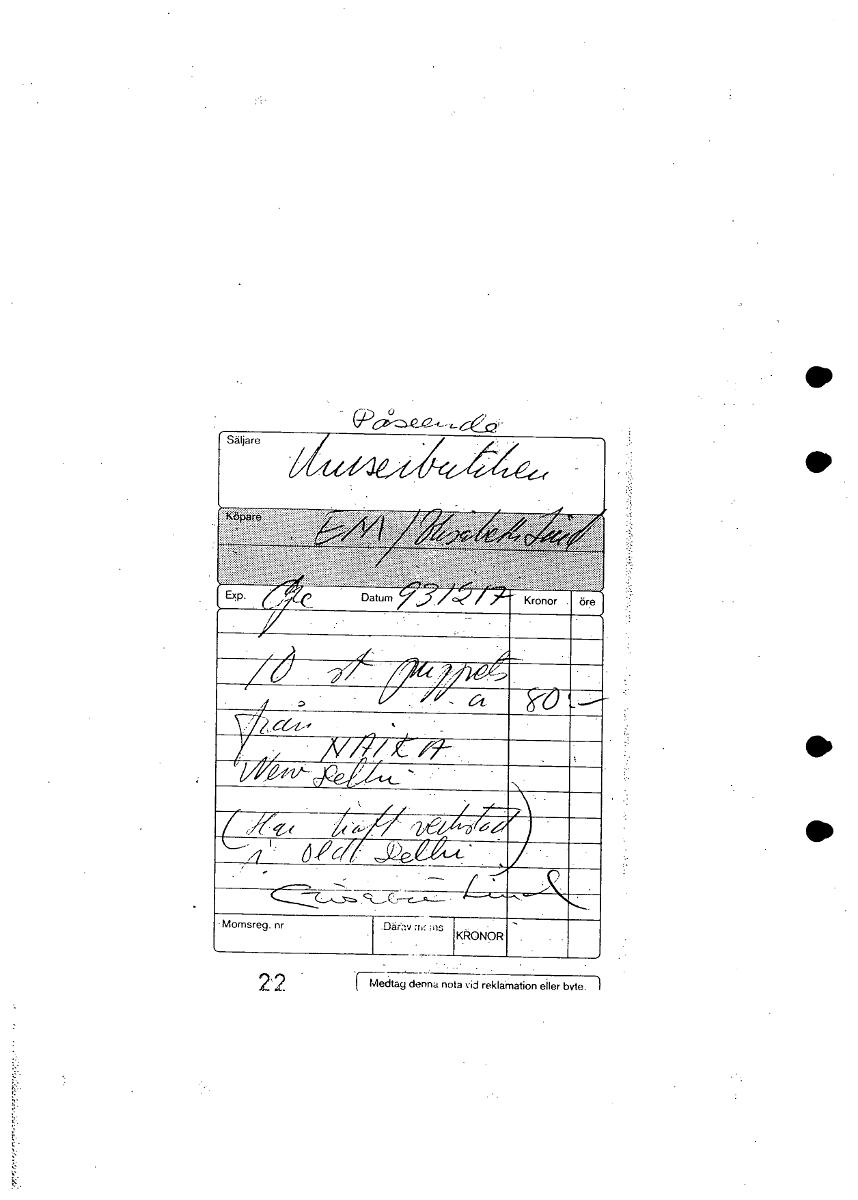 Påseende
Säljare
Museibutiken
Köpare
EM / Elisabeth Lind
Exp. Datum 931217 Kronor öre
10 st puppets
a 80:-
från
NAIKA
New Delhi
(Har haft verkstad
i Old Delhi)
Elisabeth Lind
Momsreg. nr Därav moms KRONOR
22 Medtag denna nota vid reklamation eller byte.